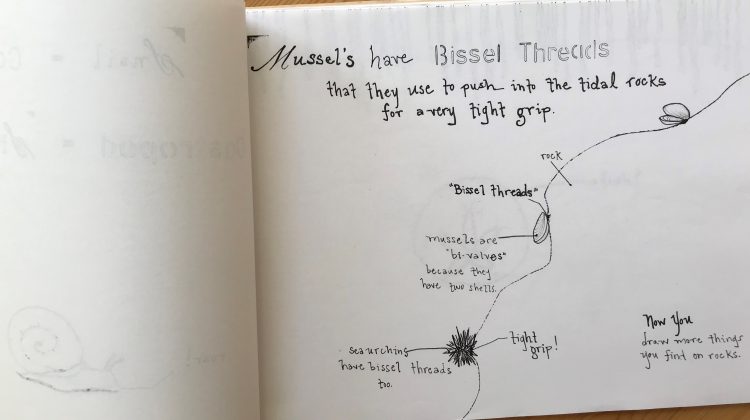 Mussel's have Bissel Threads
that they use to push into the tidal rocks
for a very tight grip.
rock
"Bissel threads"
mussels are
"bi-valves"
because they
have two shells.
tight
grip!
sea urching
have bissel threads
too.
Now You
draw more things
you find on rocks.